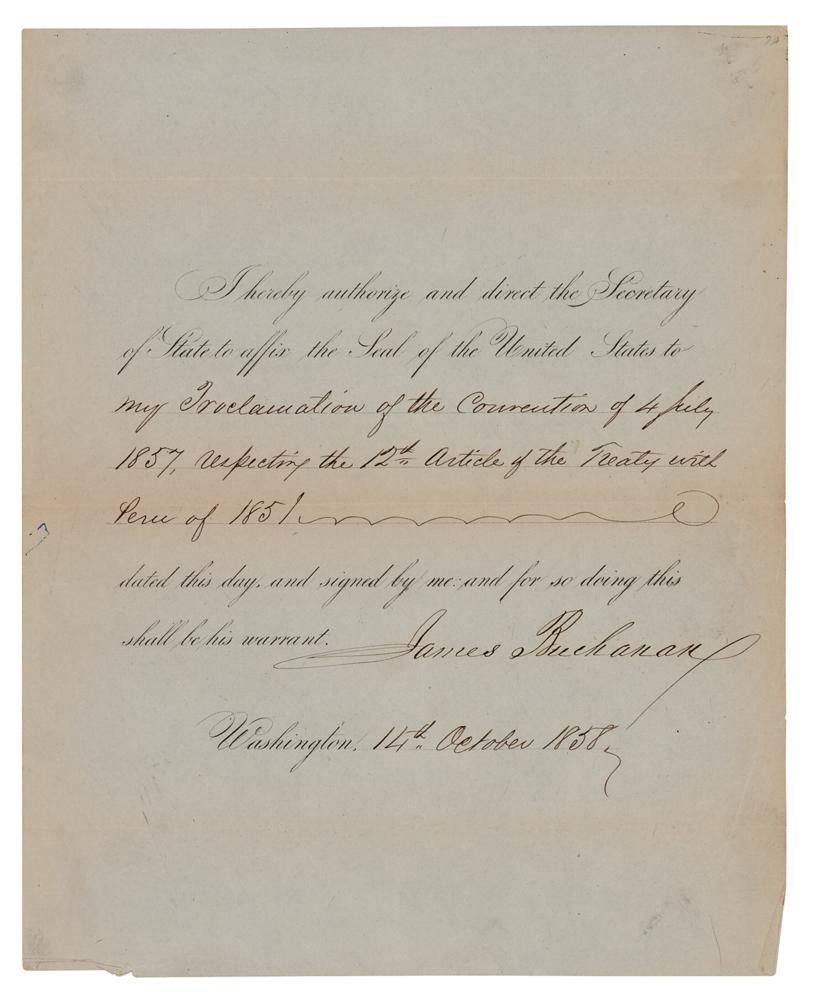 I hereby authorize and direct the Secretary
of State to affix the Seal of the United States to
my Proclamation of the Convention of 4 July
1857, respecting the 12th Article of the Treaty with
Peru of 1851
dated this day, and signed by me: and for so doing this
shall be his warrant.
James Buchanan
Washington, 14th October 1858,